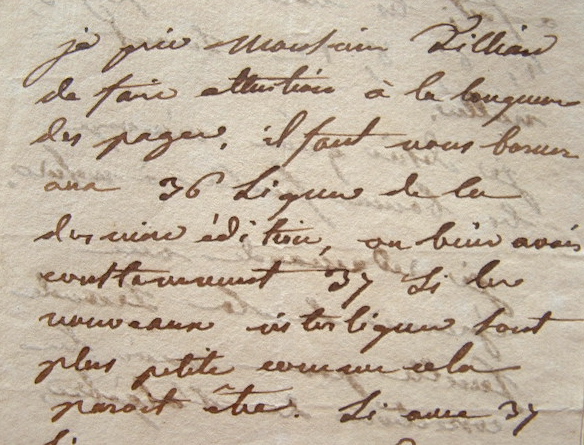 je prie Monsieur Zillian
de faire attention à la longueur
des pages, il faut nous borner
aux 36 Lignes de la
derniere édition, ou bien avoir
constamment 37 Si les
nouveaux interlignes sont
plus petits comme cela
paroit être. Si avec 37